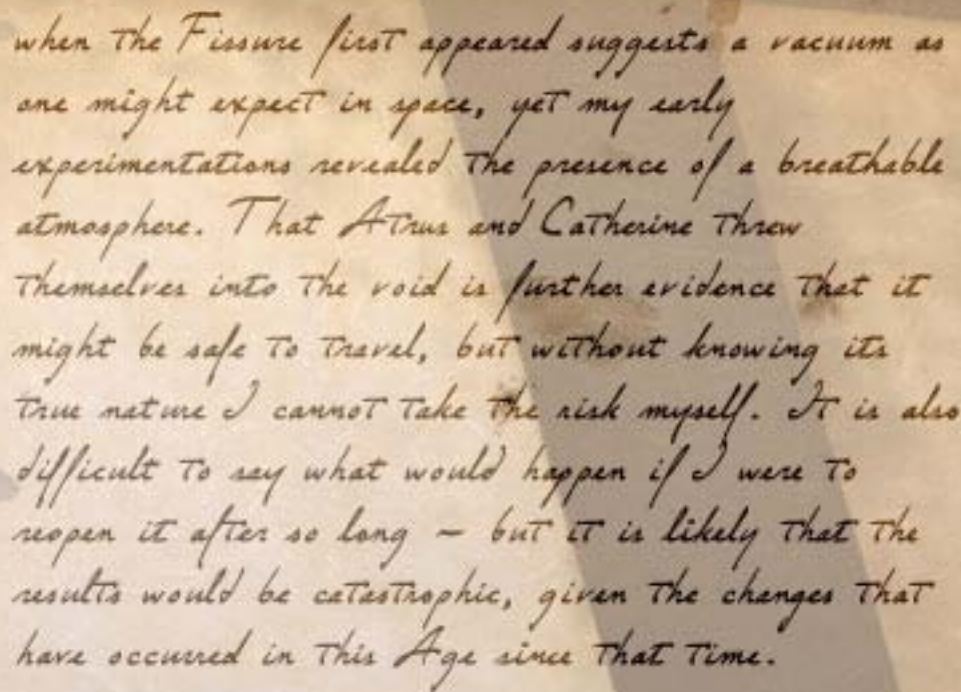 when the Fissure first appeared suggests a vacuum as
one might expect in space, yet my early
experimentations revealed the presence of a breathable
atmosphere. That Atrus and Catherine threw
themselves into the void is further evidence that it
might be safe to travel, but without knowing its
true nature I cannot take the risk myself. It is also
difficult to say what would happen if I were to
reopen it after so long – but it is likely that the
results would be catastrophic, given the changes that
have occurred in this Age since that time.